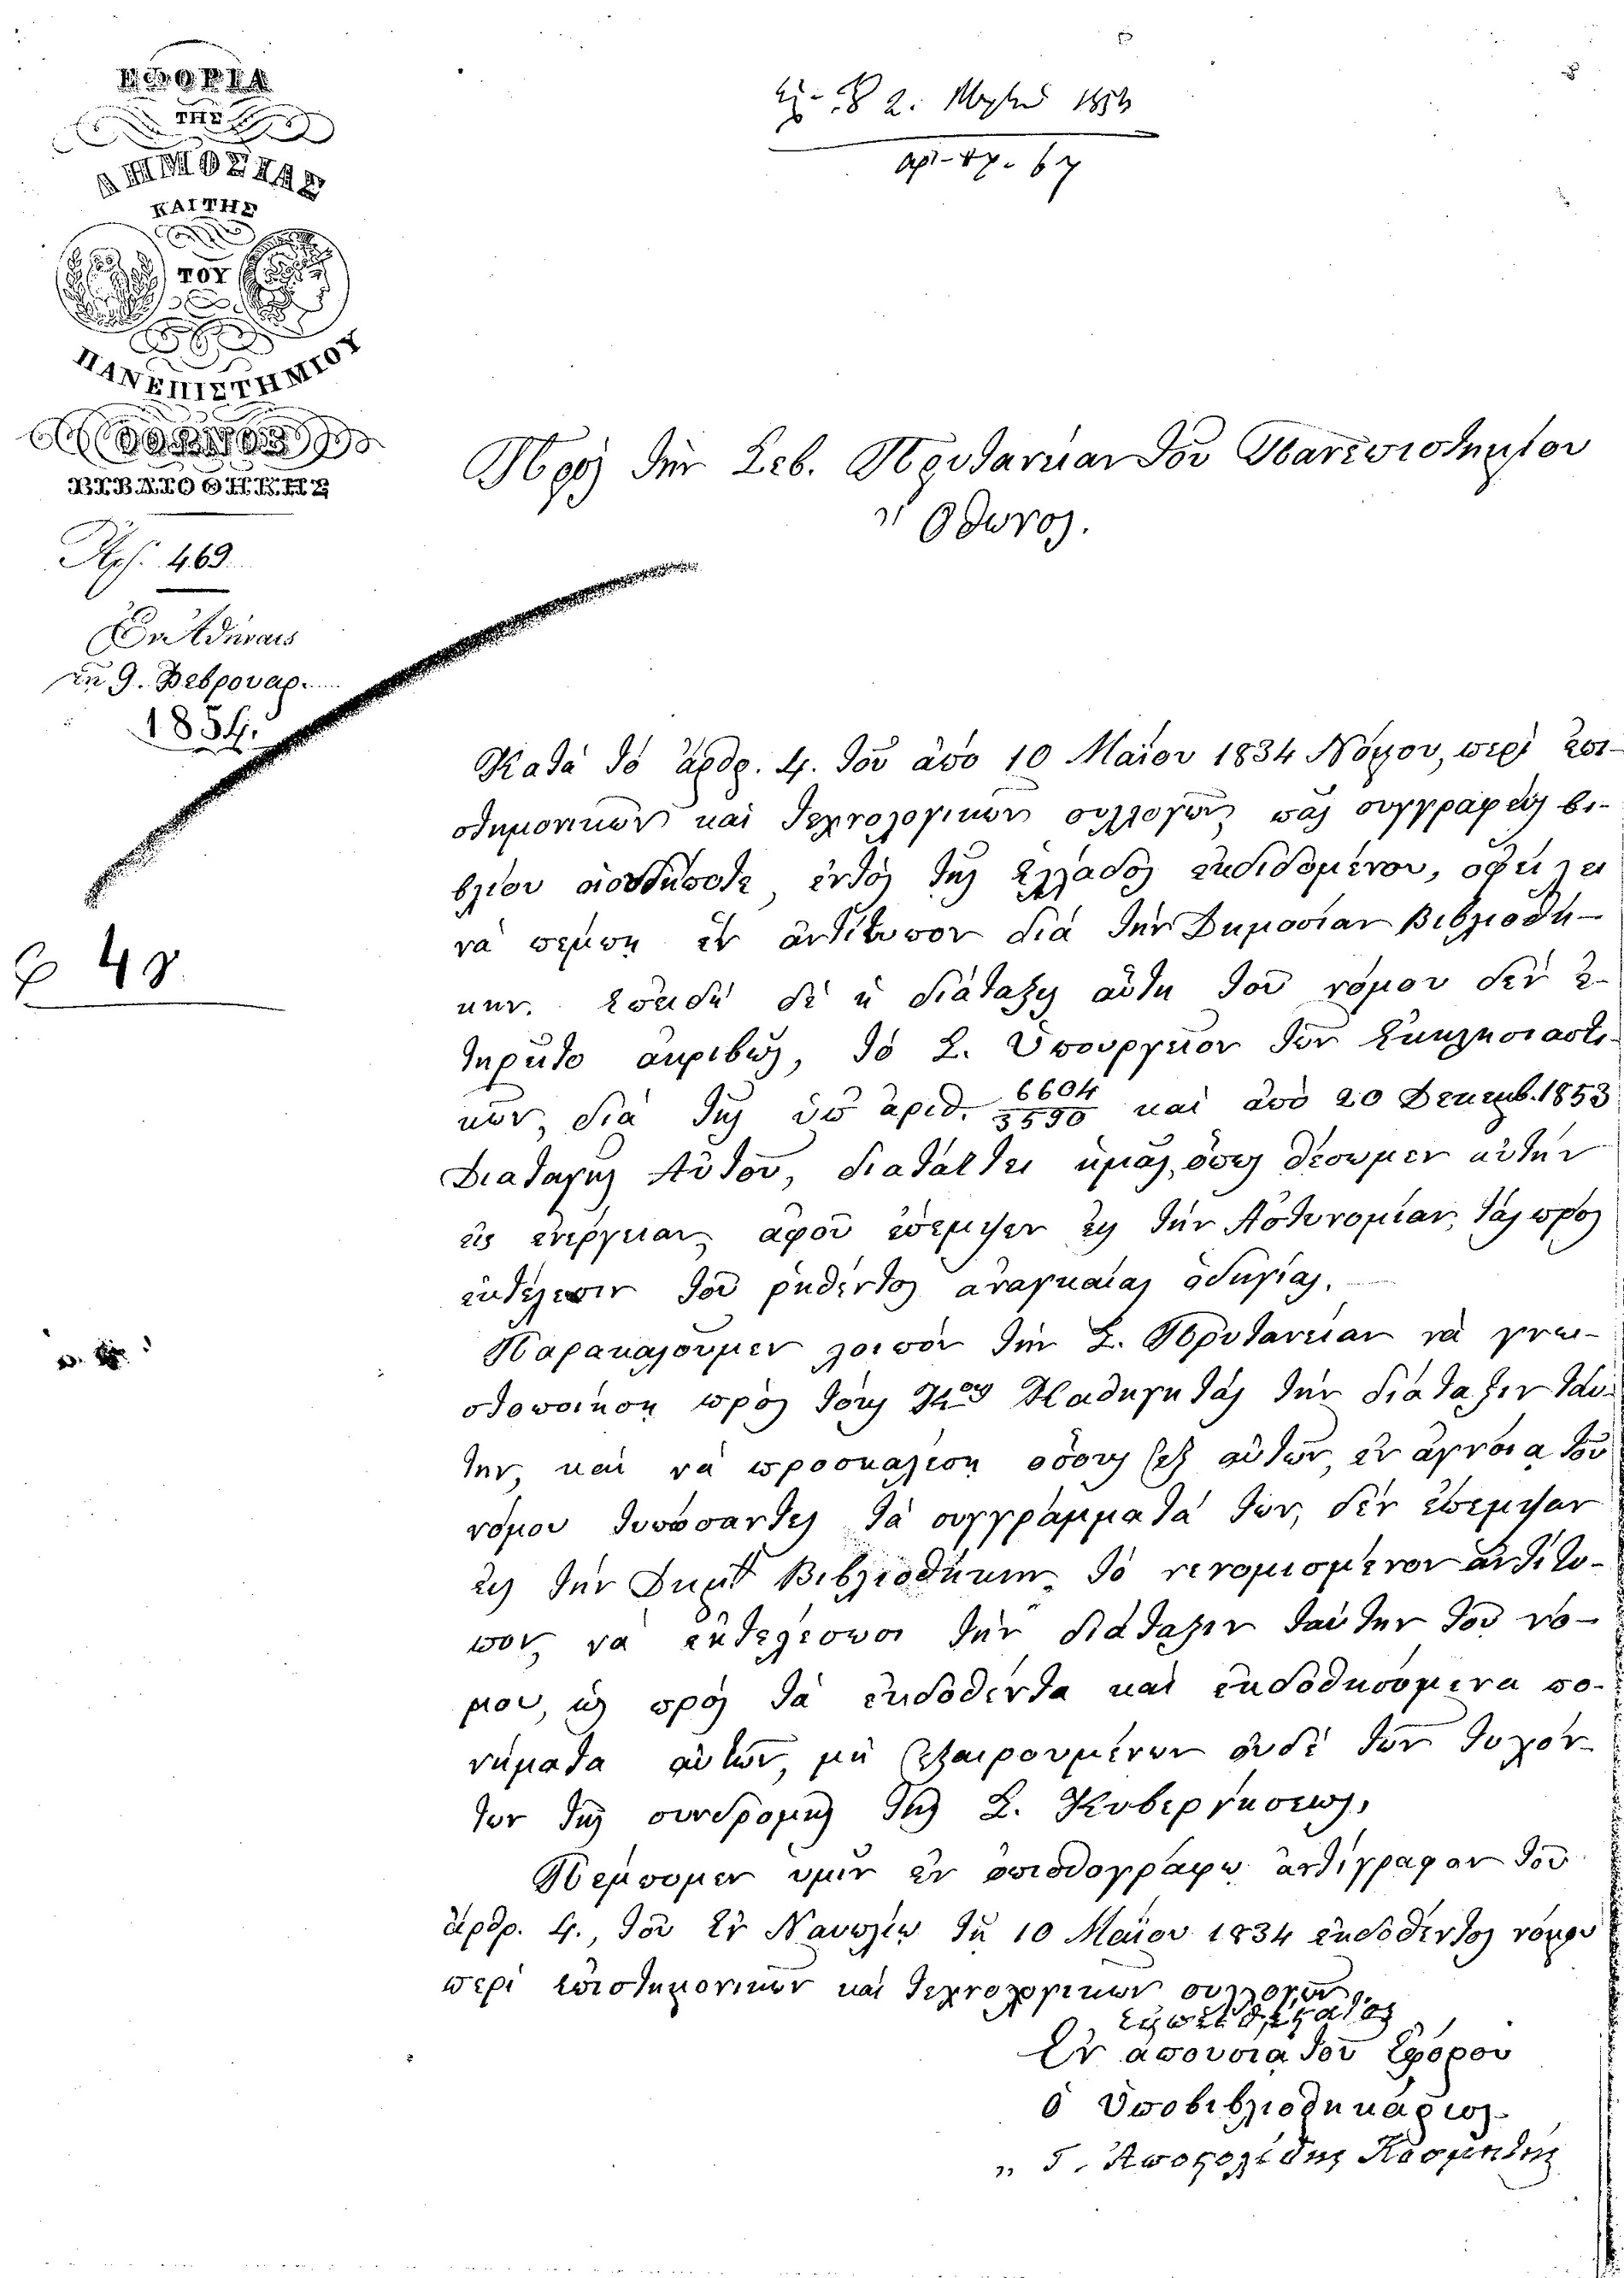 ΕΦΟΡΙΑ
ΤΗΣ
ΔΗΜΟΣΙΑΣ
ΚΑΙ ΤΗΣ
ΤΟΥ
ΠΑΝΕΠΙΣΤΗΜΙΟΥ
ΟΘΩΝΟΣ
ΒΙΒΛΙΟΘΗΚΗΣ
2. 1854
ἀρ. πρ. 67
Πρὸς τὴν Σεβ. Πρυτανείαν τοῦ Πανεπιστημίου
" Ὄθωνος.
Ἀρ. 469
Ἐν Ἀθήναις
τῇ 9. Φεβρουαρ.
1854.
Κατὰ τὸ ἄρθρ. 4. τοῦ ἀπὸ 10 Μαΐου 1834 Νόμου, περὶ ἐπι-
στημονικῶν καὶ τεχνολογικῶν συλλογῶν, πᾶς συγγραφεὺς βι-
βλίου οἱουδήποτε, ἐντὸς τῆς Ἑλλάδος ἐκδιδομένου, ὀφείλει
νὰ πέμπῃ ἓν ἀντίτυπον διὰ τὴν Δημοσίαν Βιβλιοθή-
κην. Ἐπειδὴ δὲ ἡ διάταξις αὕτη τοῦ νόμου δὲν ἐ-
τηρεῖτο ἀκριβῶς, τὸ Σ. Ὑπουργεῖον τῶν Ἐκκλησιαστι-
κῶν, διὰ τῆς ὑπ' ἀριθ. 6604/3590 καὶ ἀπὸ 20 Δεκεμβ. 1853
Διαταγῆς Αὐτοῦ, διατάττει ἡμᾶς, ὅπως θέσωμεν αὐτὴν
εἰς ἐνέργειαν, ἀφοῦ ἔπεμψεν εἰς τὴν Ἀστυνομίαν, τὰς πρὸς
ἐκτέλεσιν τοῦ ῥηθέντος ἀναγκαίας ὁδηγίας.
Παρακαλοῦμεν λοιπὸν τὴν Σ. Πρυτανείαν νὰ γνω-
στοποιήσῃ πρὸς τοὺς Κους Καθηγητὰς τὴν διάταξιν ταύ-
την, καὶ νὰ προσκαλέσῃ ὅσους ἐξ αὐτῶν, ἐν ἀγνοίᾳ τοῦ
νόμου τυπώσαντες τὰ συγγράμματά των, δὲν ἔπεμψαν
εἰς τὴν Δημ. Βιβλιοθήκην, τὸ νενομισμένον ἀντίτυ-
πον, νὰ ἐκτελέσωσι τὴν διάταξιν ταύτην τοῦ νό-
μου, ὡς πρὸς τὰ ἐκδοθέντα καὶ ἐκδοθησόμενα πο-
νήματα αὐτῶν, μὴ ἐξαιρουμένων οὐδὲ τῶν τυχόν-
των τῆς συνδρομῆς τῆς Σ. Κυβερνήσεως.
Πέμπομεν ὑμῖν ἐν ὀπισθογράφῳ ἀντίγραφον τοῦ
ἄρθρ. 4., τοῦ ἐν Ναυπλίῳ τῇ 10 Μαΐου 1834 ἐκδοθέντος νόμου
περὶ ἐπιστημονικῶν καὶ τεχνολογικῶν συλλογῶν.
Εὐπειθέστατος
Ἐν ἀπουσίᾳ τοῦ Ἐφόρου
ὁ Ὑποβιβλιοθηκάριος
" Γ. Ἀποστολίδης Κοσμητής